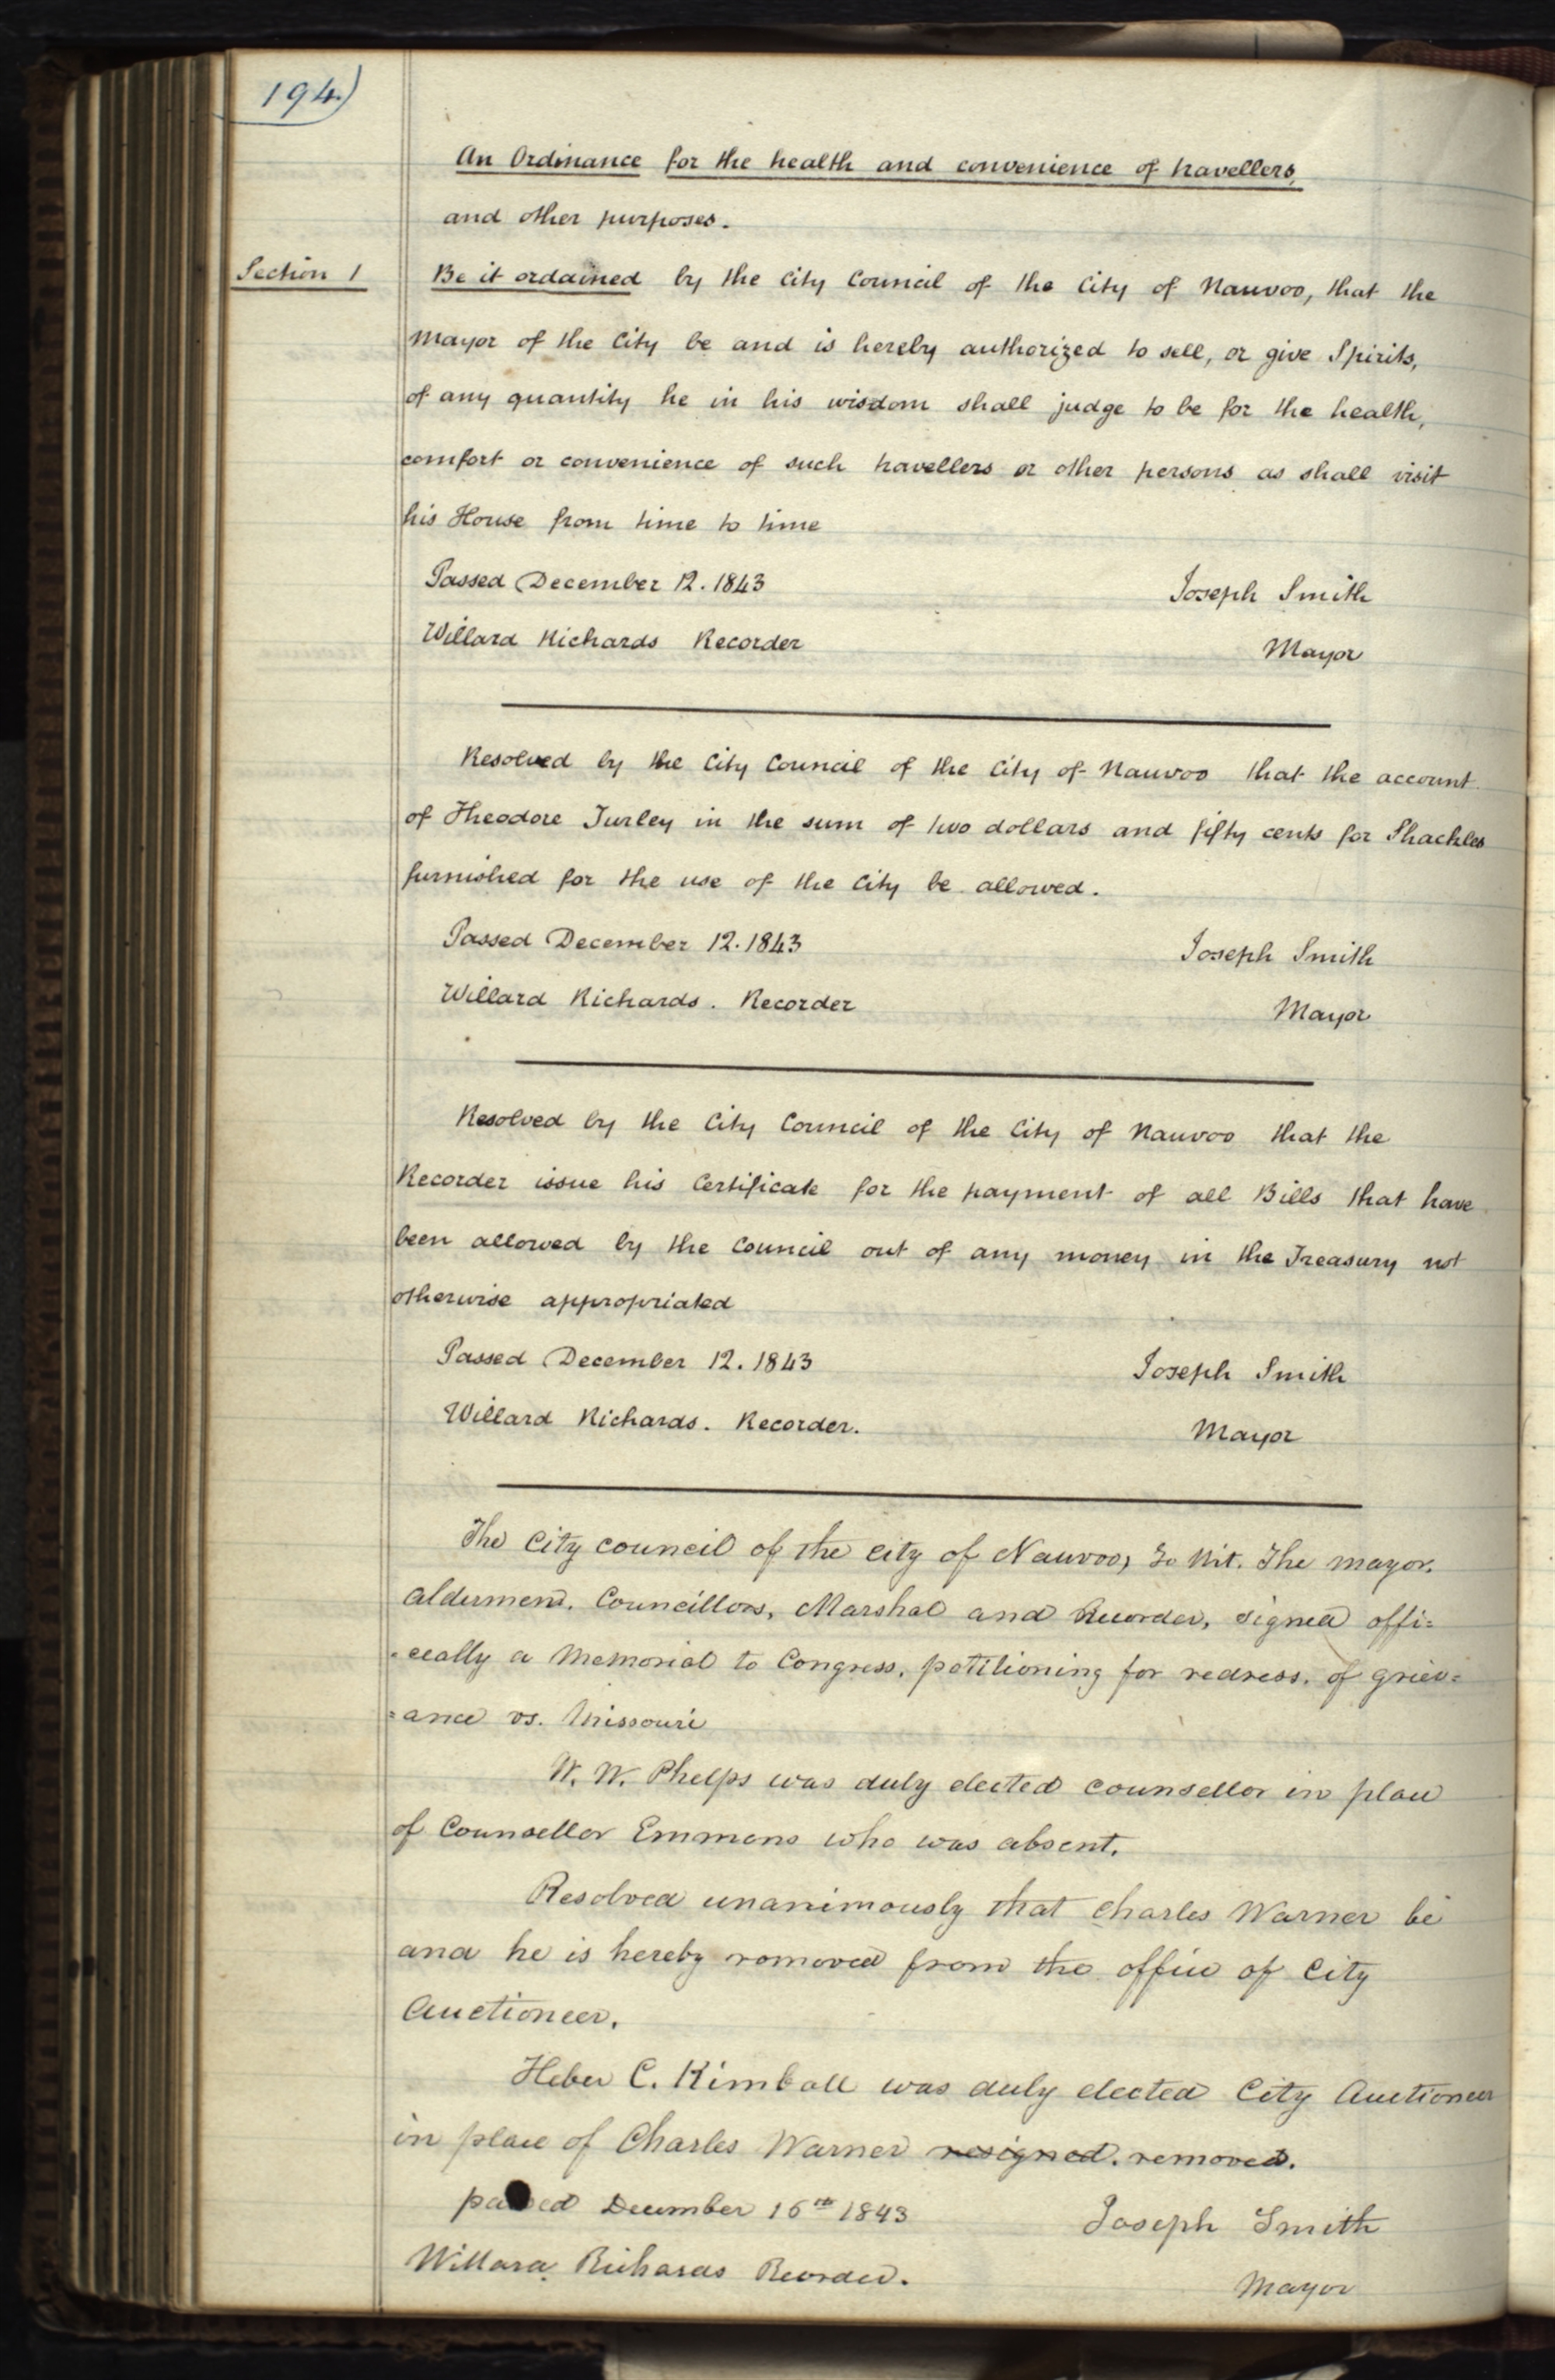 194)
An Ordinance for the health and convenience of travellers,
and other purposes.
Section 1 Be it ordained by the City Council of the City of Nauvoo, that the
Mayor of the City be and is hereby authorized to sell, or give Spirits,
of any quantity he in his wisdom shall judge to be for the health,
comfort or convenience of such travellers or other persons as shall visit
his House from time to time
Passed December 12. 1843 Joseph Smith
Willard Richards Recorder Mayor
Resolved by the City Council of the City of Nauvoo that the account
of Theodore Turley in the sum of two dollars and fifty cents for Shackles
furnished for the use of the City be allowed.
Passed December 12. 1843 Joseph Smith
Willard Richards. Recorder Mayor
Resolved by the City Council of the City of Nauvoo that the
Recorder issue his Certificate for the payment of all Bills that have
been allowed by the Council out of any money in the Treasury not
otherwise appropriated
Passed December 12. 1843 Joseph Smith
Willard Richards. Recorder. Mayor
The City council of the city of Nauvoo, To Wit. The mayor.
Aldermen. Councillors, Marshal and Recorder, signed offi=
=cially a Memorial to Congress, petitioning for redress. of griev=
=ance vs. Missouri
W. W. Phelps was duly elected counsellor in place
of Counsellor Emmons who was absent.
Resolved unanimously that Charles Warner be
and he is hereby romoved from the office of City
Auctioneer.
Heber C. Kimball was duly elected City Auctioneer
in place of Charles Warner resigned. removed.
passed December 16th 1843 Joseph Smith
Willard Richards Recorder. Mayor